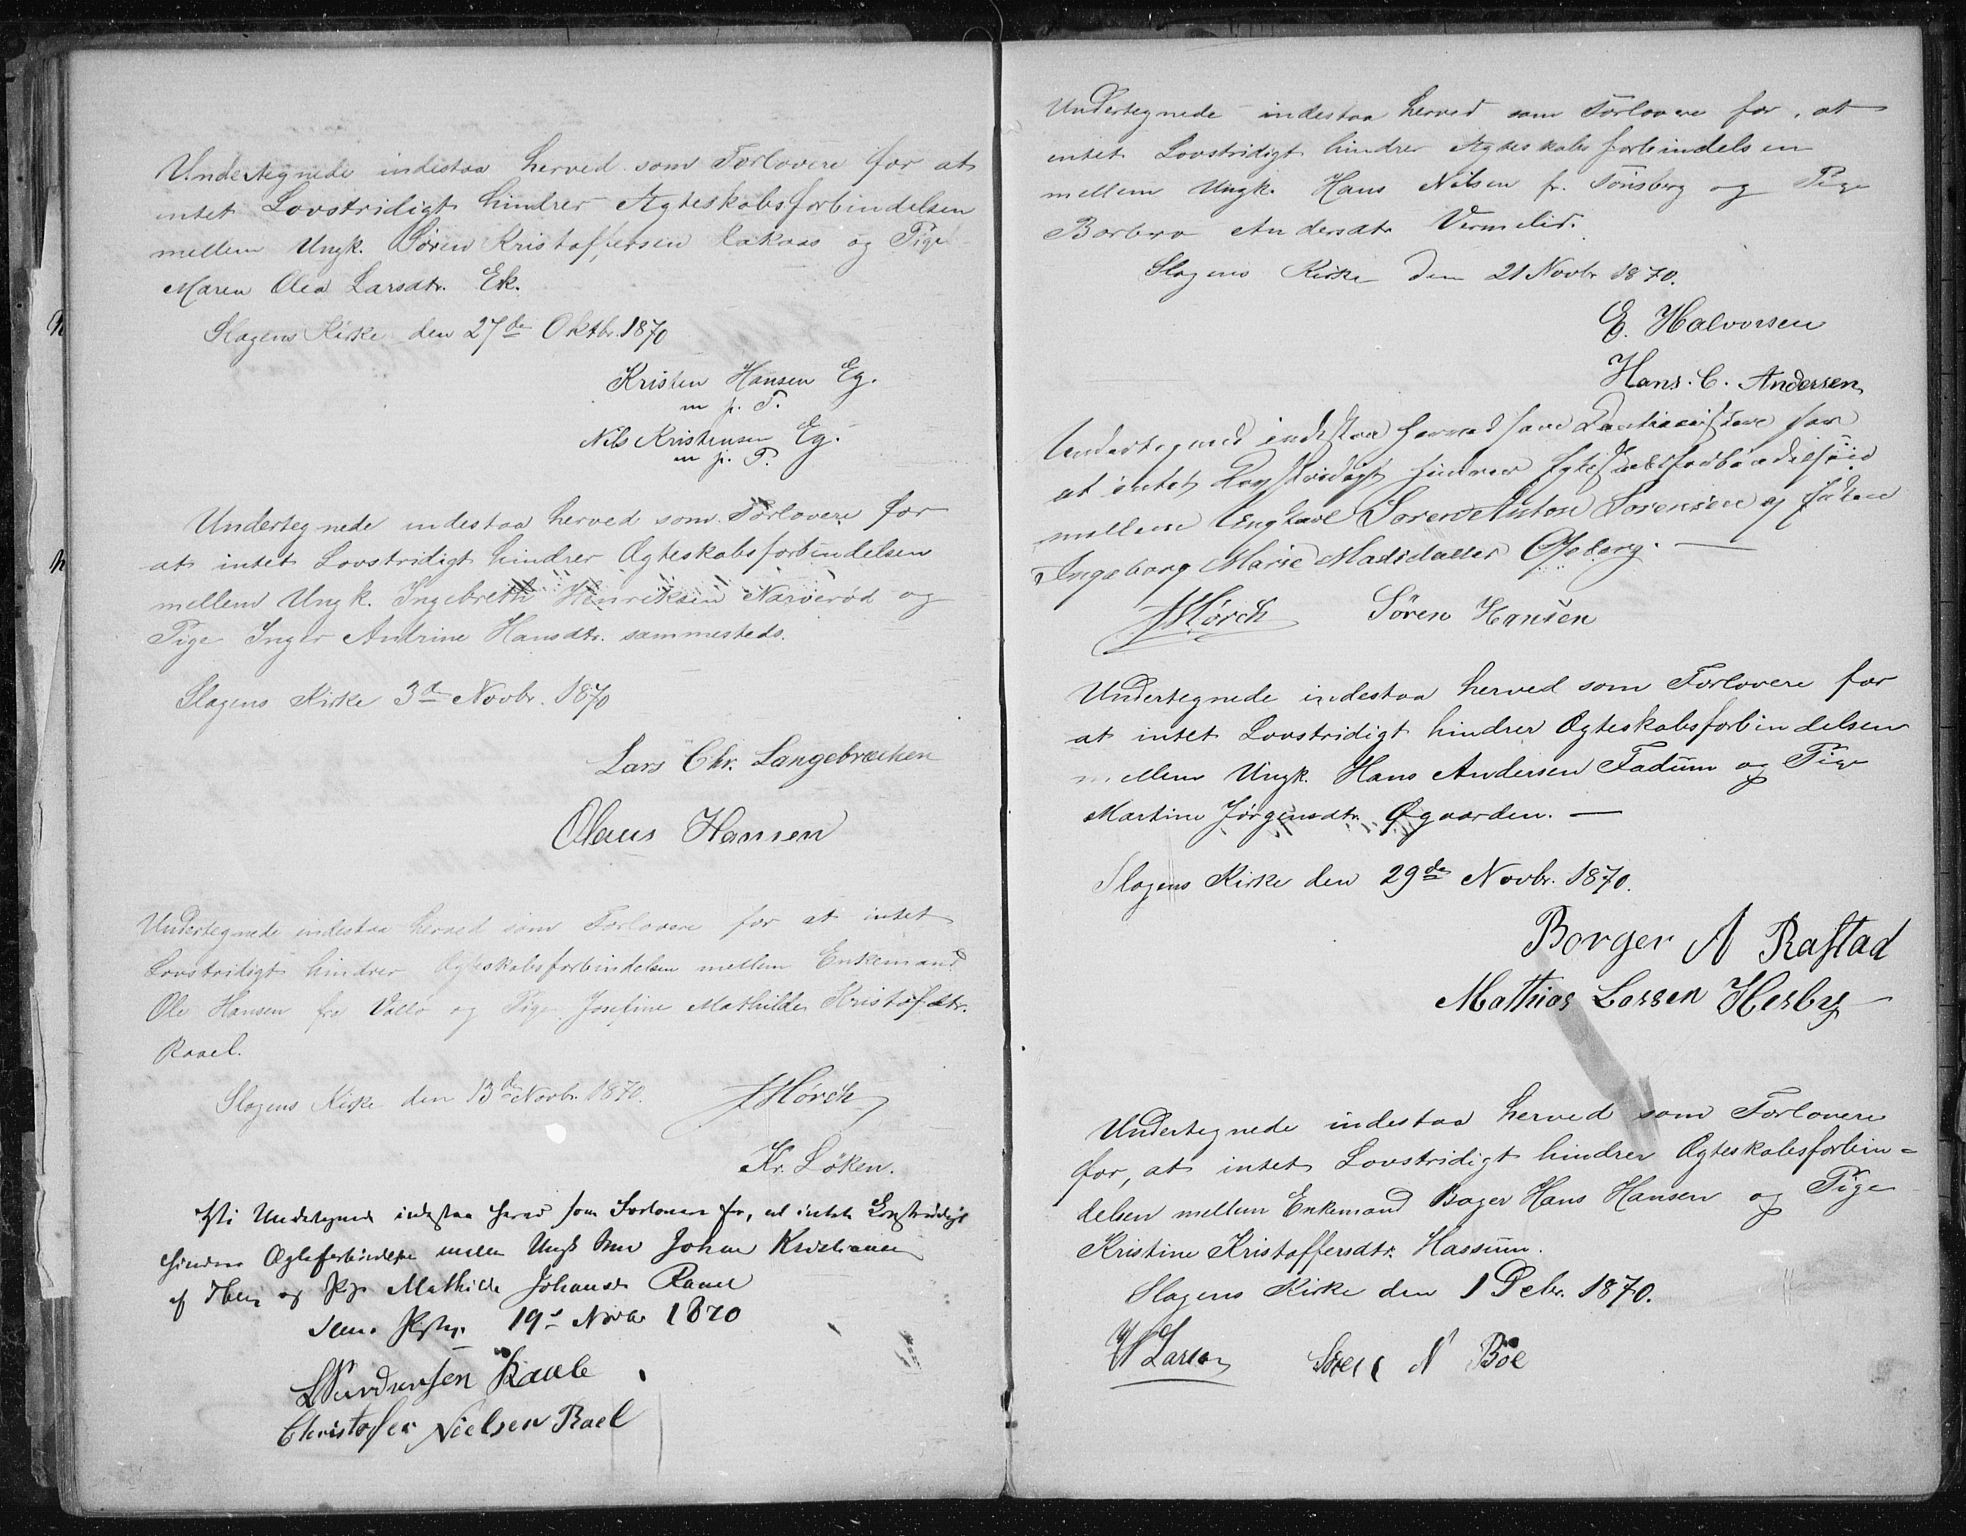 Undertegnede indestaa herved som Forlovere for at
intet Lovstridigt hindrer Ægteskabsforbindelsen
mellem Ungk. Søren Kristoffersen Cakaas og Pige
Maren Olea Larsdtr. Ek.
Slagens Kirke den 27de Oktbr. 1870
Kristen Hansen Eg.
m p. P.
Nils Kristensen Eg.
m p. P.
Undertegnede indestaa herved som Forlovere for
at intet Lovstridigt hindrer Ægteskabsforbindelsen
mellem Ungk. Ingebreth Henriksen Narverød og
Pige Inger Andrine Hansdtr. sammesteds.
Slagens Kirke 3de Novbr. 1870
Lars Chr. Langebrækken
Olaus Hansen
Undertegnede indestaa herved som Forlovere for at intet
Lovstridigt hindrer Ægteskabsforbindelsen mellem Enkemand
Ole Hansen fra Vallø og Pige Josefine Mathilde Kristofdtr.
Raael.
Slagens Kirke den 13de Novbr. 1870.
Hørch
Kr. Løken.
Vi Undertegnede indestaa herved som Forlovere for, at intet Lovstridigt
hindrer Ægteforbindelse mellem Ungk Johan Kristiansen
af og Pige Mathilde Johansdt Raael
19de Novbr 1870
Raale
Christoffer Nielsen Rael
Undertegnede indestaa herved som Forlovere for, at
intet Lovstridigt hindrer Ægteskabsforbindelsen
mellem Ungk. Hans Nilsen fr. Tønsberg og Pige
Barbra Andersdtr Vermelid.
Slagens Kirke den 21 Novbr 1870.
E. Halvorsen
Hans. C. Andersen
Undertegned indestaa herved som for
at intet Lovstridigt hindrer Egteskabsforbindelsen
mellem Ungkarl Soren Anton Sorensen og Piken
Ingeborg Marie Madsdatter Ofeborg.
Hørch Søren Hansen
Undertegnede indestaa herved som Forlovere for
at intet Lovstridigt hindrer Ægteskabsforbindelsen
mellem Ungk. Hans Andersen Fadum og Pige
Martine Jørgensdtr. Øgaarden.
Slagens Kirke den 29de Novbr. 1870.
Borger A Rastad
Mathias Larsen Hesby
Undertegnede indestaa herved som Forlovere
for, at intet Lovstridigt hindrer Ægteskabsforbin=
delsen mellem Enkemand Bager Hans Hansen og Pige
Kristine Kristoffersdtr. Hassum.
Slagens Kirke den 1 Debr. 1870.
Larsen Søren N Bøe